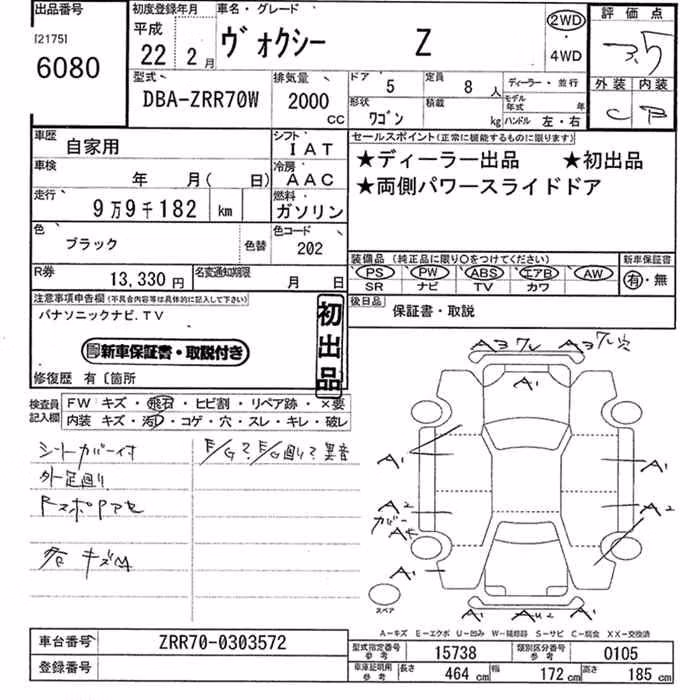 出品番号
[2175]
6080
初度登録年月
平成
22年 2月
車名・グレード
ヴォクシー Z
2WD
・
4WD
評価点
3.5
外装 内装
C B
型式
DBA-ZRR70W
排気量
2000
CC
ドア 5
定員 8 人
ディーラー・並行
形状
ワゴン
積載
kg
モデル年式 年
ハンドル 左・右
車歴 自家用
シフト
IAT
車検 年 月( 日)
冷房
AAC
走行 9万9千182 km
燃料
ガソリン
色 ブラック
色替
色コード
202
R券 13,330円
名変通知期限 月 日
セールスポイント(正常に機能するものに限ります)
★ディーラー出品 ★初出品
★両側パワースライドドア
装備品(純正品に限り○をつけてください)
PS PW ABS エアB AW
SR ナビ TV カワ
新車保証書
有・無
後日品
保証書・取説
注意事項申告欄(不具合内容等は具体的に記入して下さい)
パナソニックナビ.TV
新車保証書・取説付き
初出品
修復歴 有〔箇所
検査員記入欄
FW キズ・飛石・ヒビ割・リペア跡・×要
内装 キズ・汚レ・コゲ・穴・スレ・キレ・破レ
シートカバー付
外足回り
E/Gマ E/G回りマ異音
各キズ
A3ワレ A3ワレ穴
A1
A1 A1
A2 A2
ガバー
A1
A1 AU2 A1
スペア
A−キズ E−エクボ U−凹み W−補修跡 S−サビ C−腐食 XX−交換済
車台番号 ZRR70-0303572
登録番号
型式指定番号 参考 15738
類別区分番号 参考 0105
車庫証明用 参考 長さ 464cm 幅 172cm 高さ 185cm